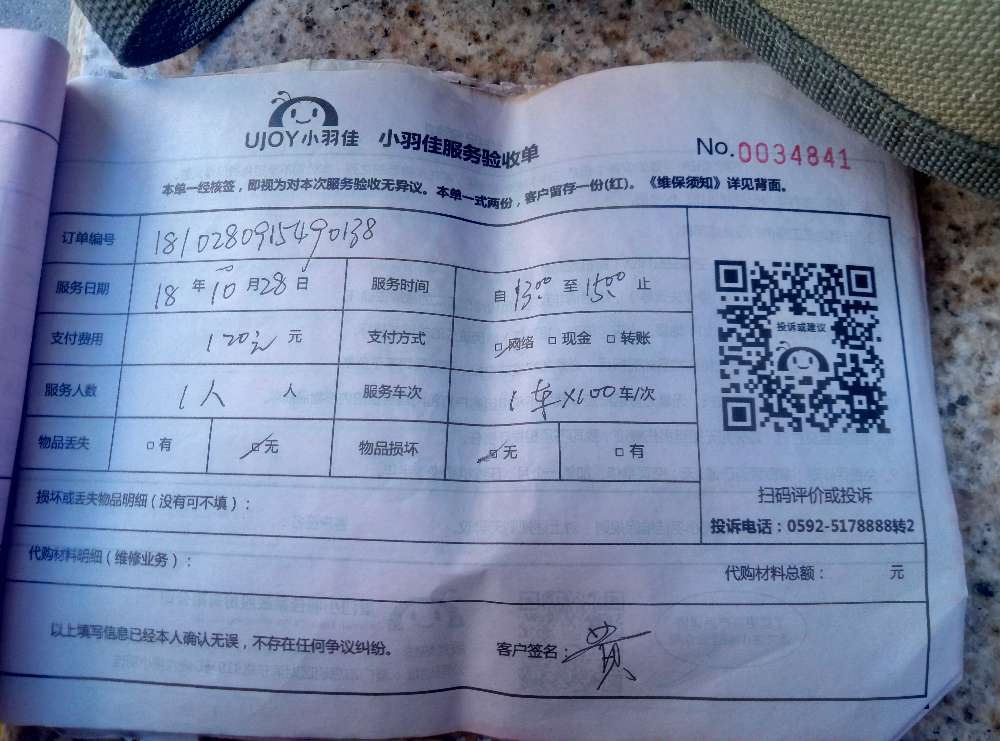 UJOY小羽佳 小羽佳服务验收单 No.0034841
本单一经核签，即视为对本次服务验收无异议。本单一式两份，客户留存一份(红)。《维保须知》详见背面。
订单编号 181028091549 0138
服务日期 18 年 10 月 28 日 服务时间 自 13:00 至 15:00 止
支付费用 120元 元 支付方式 □网络 □现金 □转账
投诉或建议
服务人数 1人 人 服务车次 1车×100 车/次
物品丢失 □有 □无 物品损坏 □无 □有
损坏或丢失物品明细（没有可不填）：
扫码评价或投诉
投诉电话：0592-5178888转2
代购材料明细（维修业务）：
代购材料总额： 元
以上填写信息已经本人确认无误，不存在任何争议纠纷。 客户签名： 黄